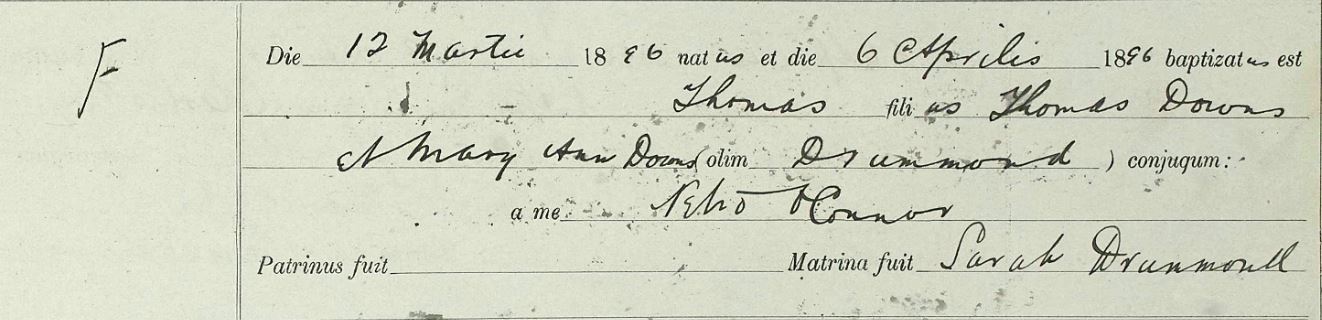 F
Die 12 Martii 1896 natus et die 6 Aprilis 1896 baptizatus est
Thomas filius Thomas Downs
et Mary Ann Downs (olim Drummond) conjugum:
a me O'Connor
Patrinus fuit Matrina fuit Sarah Drummond